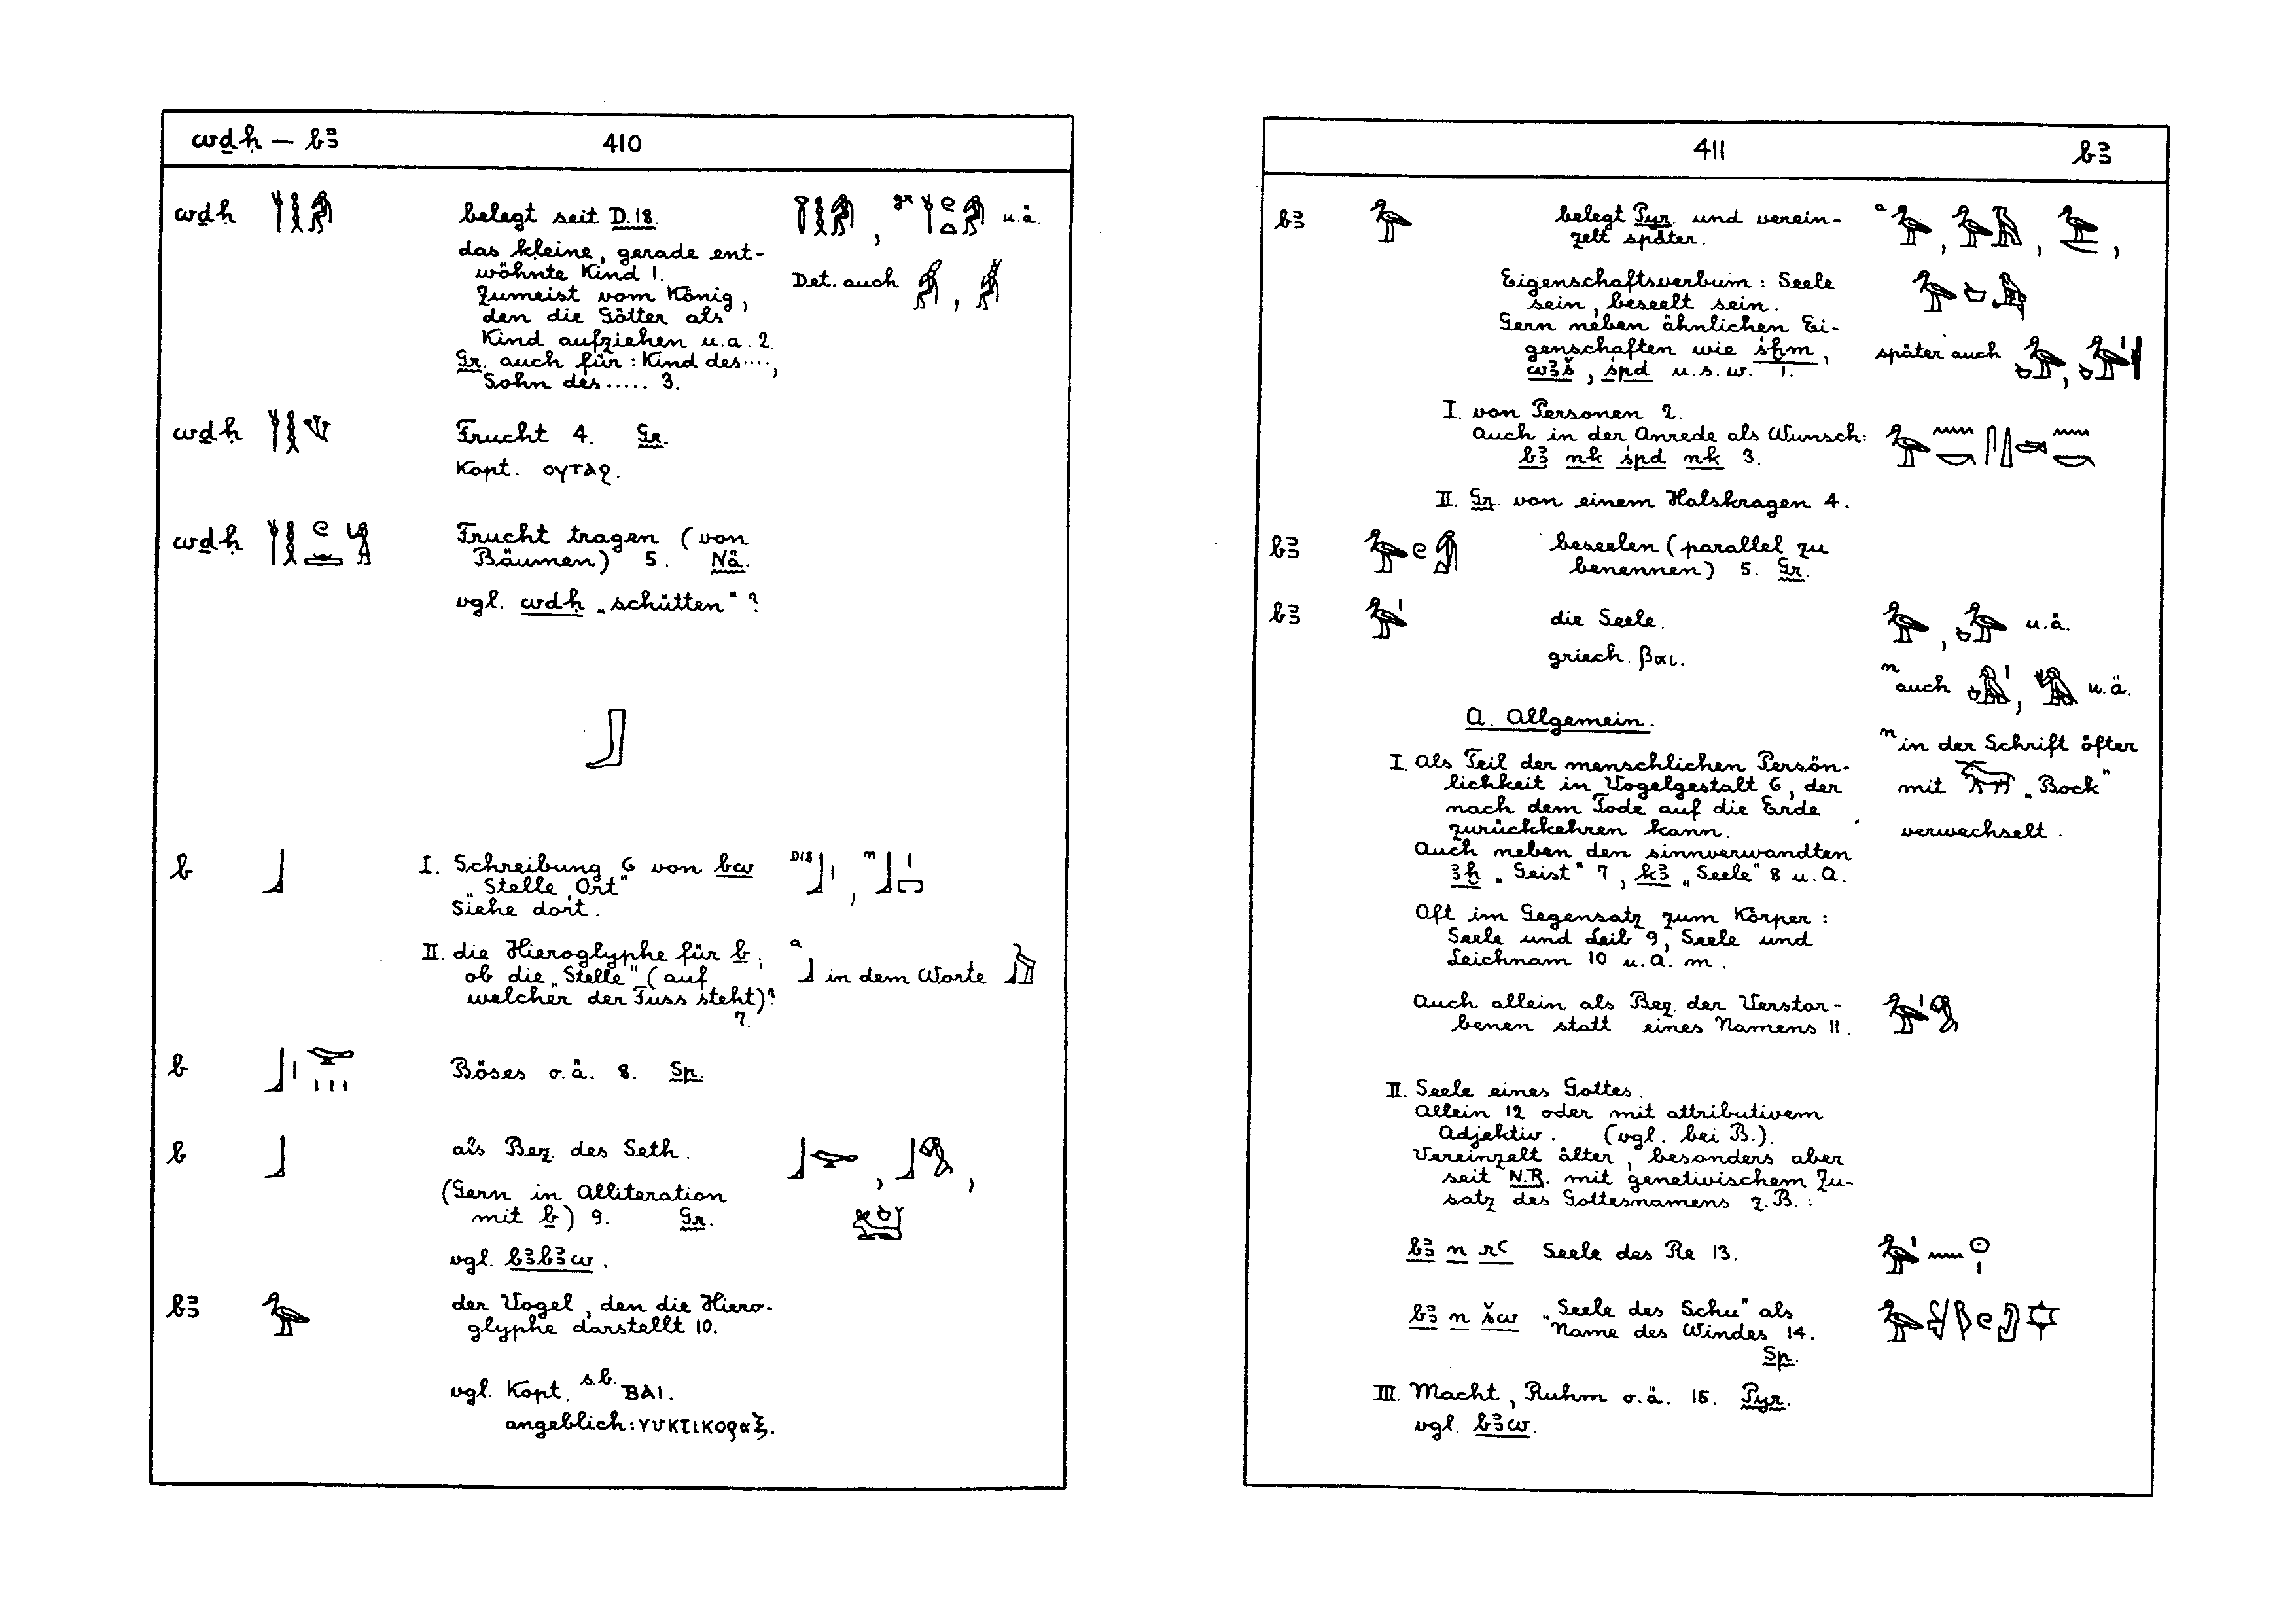 wḏḥ — bꜣ 410
wḏḥ belegt seit D.18. , gr u.ä.
das kleine, gerade ent-
wöhnte Kind 1. Det. auch ,
Zumeist vom König,
den die Götter als
Kind aufziehen u.a. 2.
Gr. auch für: Kind des....,
Sohn des..... 3.
wḏḥ Frucht 4. Gr.
Kopt. ⲟⲩⲧⲁϩ.
wḏḥ Frucht tragen (von
Bäumen) 5. Nä.
vgl. wdḥ „schütten“?
b I. Schreibung 6 von bw D18 , n
„Stelle, Ort“
Siehe dort.
II. die Hieroglyphe für b; a
ob die „Stelle“ (auf in dem Worte
welcher der Fuss steht)?
7.
b Böses o.ä. 8. Sp.
b als Bez. des Seth. , ,
(Gern in Alliteration
mit b) 9. Gr.
vgl. bꜣbꜣw.
bꜣ der Vogel, den die Hiero-
glyphe darstellt 10.
vgl. Kopt. s.b. ⲃⲁⲓ.
angeblich: νυκτικοραξ.
411 bꜣ
bꜣ belegt Pyr. und verein- a , , ,
zelt später.
Eigenschaftsverbum: Seele
sein, beseelt sein.
Gern neben ähnlichen Ei-
genschaften wie śḫm, später auch ,
wꜣš, śpd u.s.w. 1.
I. von Personen 2.
Auch in der Anrede als Wunsch:
bꜣ nk śpd nk 3.
II. Gr. von einem Halskragen 4.
bꜣ beseelen (parallel zu
benennen) 5. Gr.
bꜣ die Seele. , u.ä.
griech. βαι. n auch , u.ä.
A. Allgemein.
n in der Schrift öfter
I. Als Teil der menschlichen Persön-
lichkeit in Vogelgestalt 6, der mit „Bock“
nach dem Tode auf die Erde
zurückkehren kann. verwechselt.
Auch neben den sinnverwandten
ꜣḫ „Geist“ 7, kꜣ „Seele“ 8 u.a.
Oft im Gegensatz zum Körper:
Seele und Leib 9, Seele und
Leichnam 10 u.a.m.
Auch allein als Bez. der Verstor-
benen statt eines Namens 11.
II. Seele eines Gottes.
Allein 12 oder mit attributivem
Adjektiv. (vgl. bei B.).
Vereinzelt älter, besonders aber
seit N.R. mit genetivischem Zu-
satz des Gottesnamens z.B.:
bꜣ n rꜥ Seele des Re 13.
bꜣ n šw „Seele des Schu“ als
Name des Windes 14.
Sp.
III. Macht, Ruhm o.ä. 15. Pyr.
vgl. bꜣw.